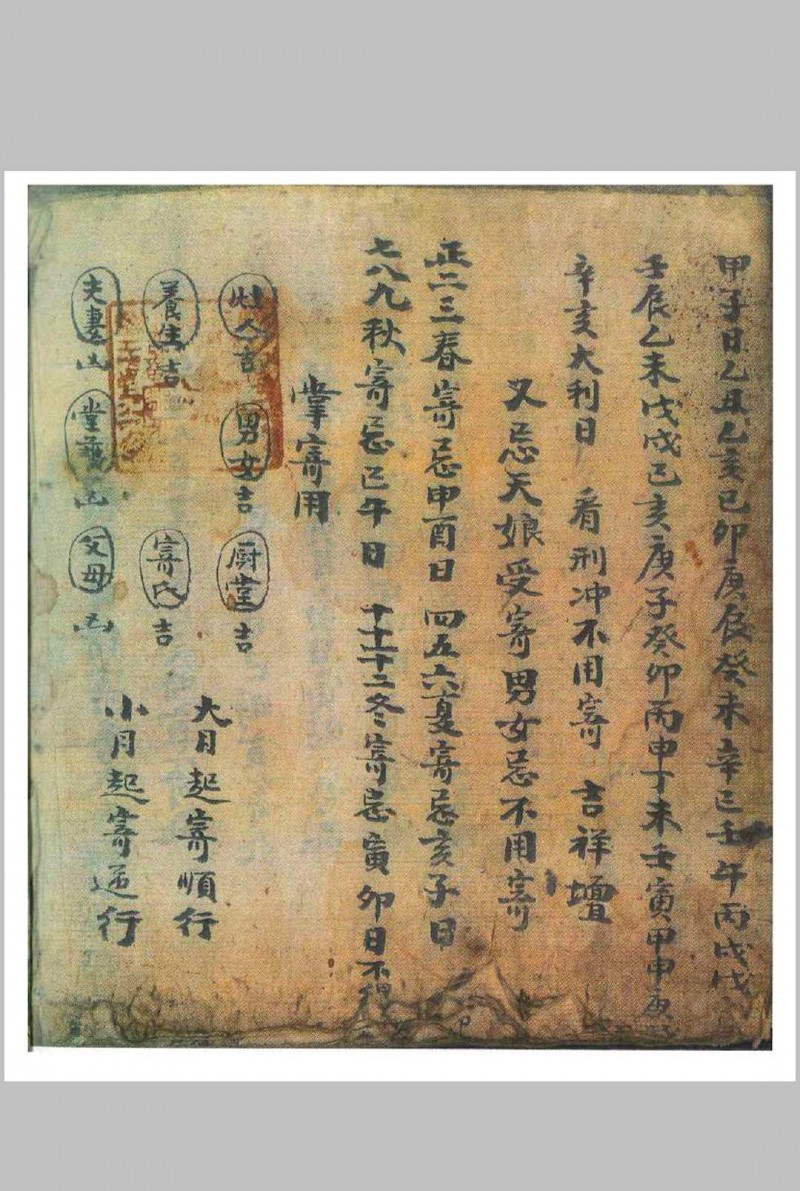 甲子日乙丑乙亥己卯庚辰癸未辛巳壬午丙戌戊
壬辰乙未戊戌己亥庚子癸卯丙申丁未壬寅甲申庚
辛亥大利日 看刑冲不用寄 吉祥壇
又忌天娘受寄男女忌不用寄
正二三春寄忌申酉日 四五六夏寄忌亥子日
七八九秋寄忌巳午日 十十一十二冬寄忌寅卯日不
掌寄用
灶人吉 男女吉 厨堂吉
養生吉 寄氏吉
夫妻凶 堂 凶 父母凶
大月起寄順行
小月起寄逆行